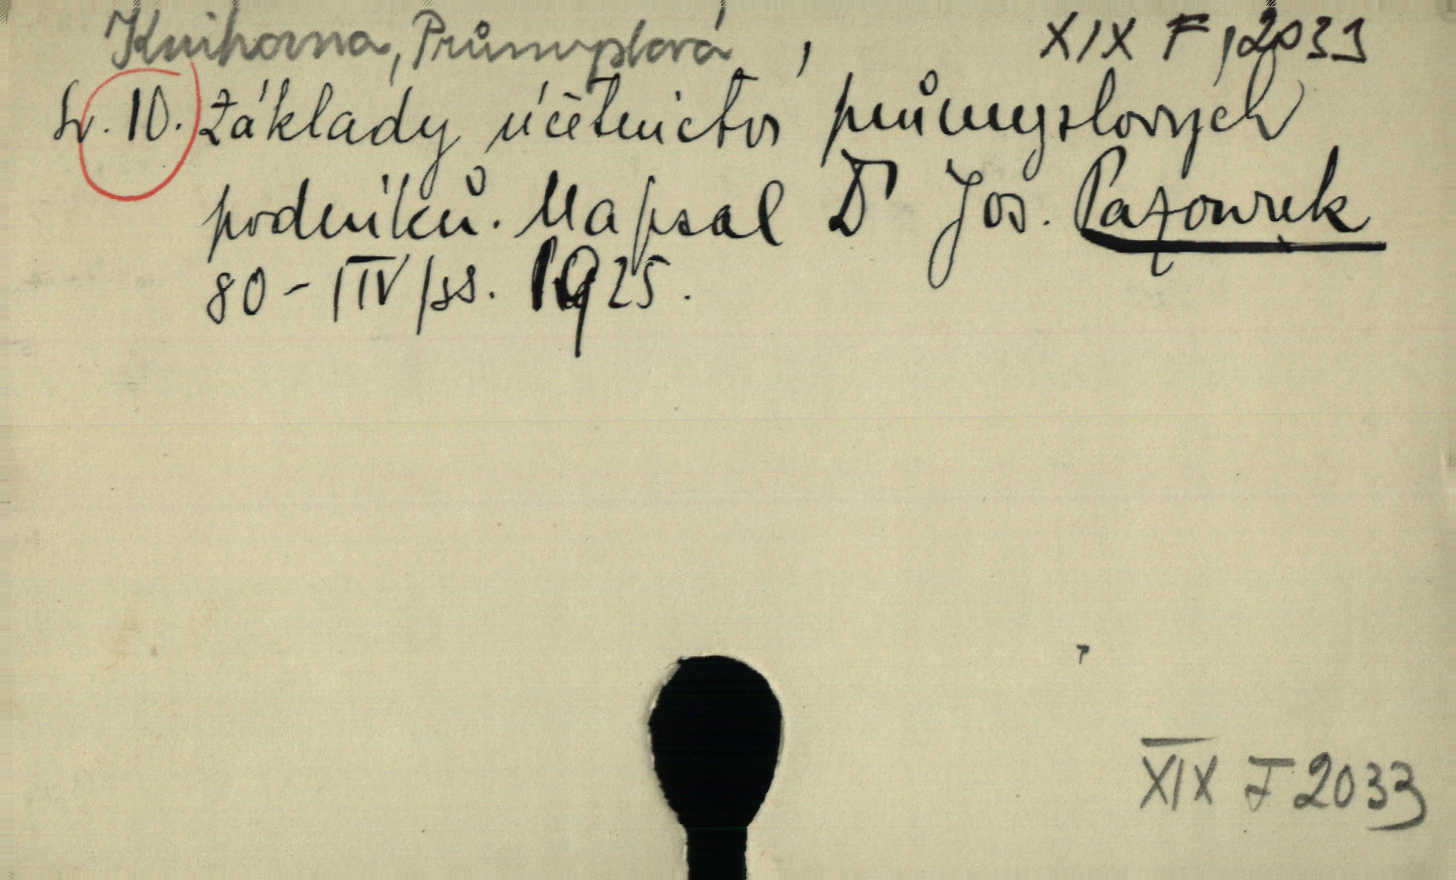 Knihovna, Průmyslová, XIX F, 2033
Sv. 10. Základy účetnictva průmyslových
podniků. Napsal Dr Jos. Pazourek
80 - IIV /ss. 1925.
XIX F 2033